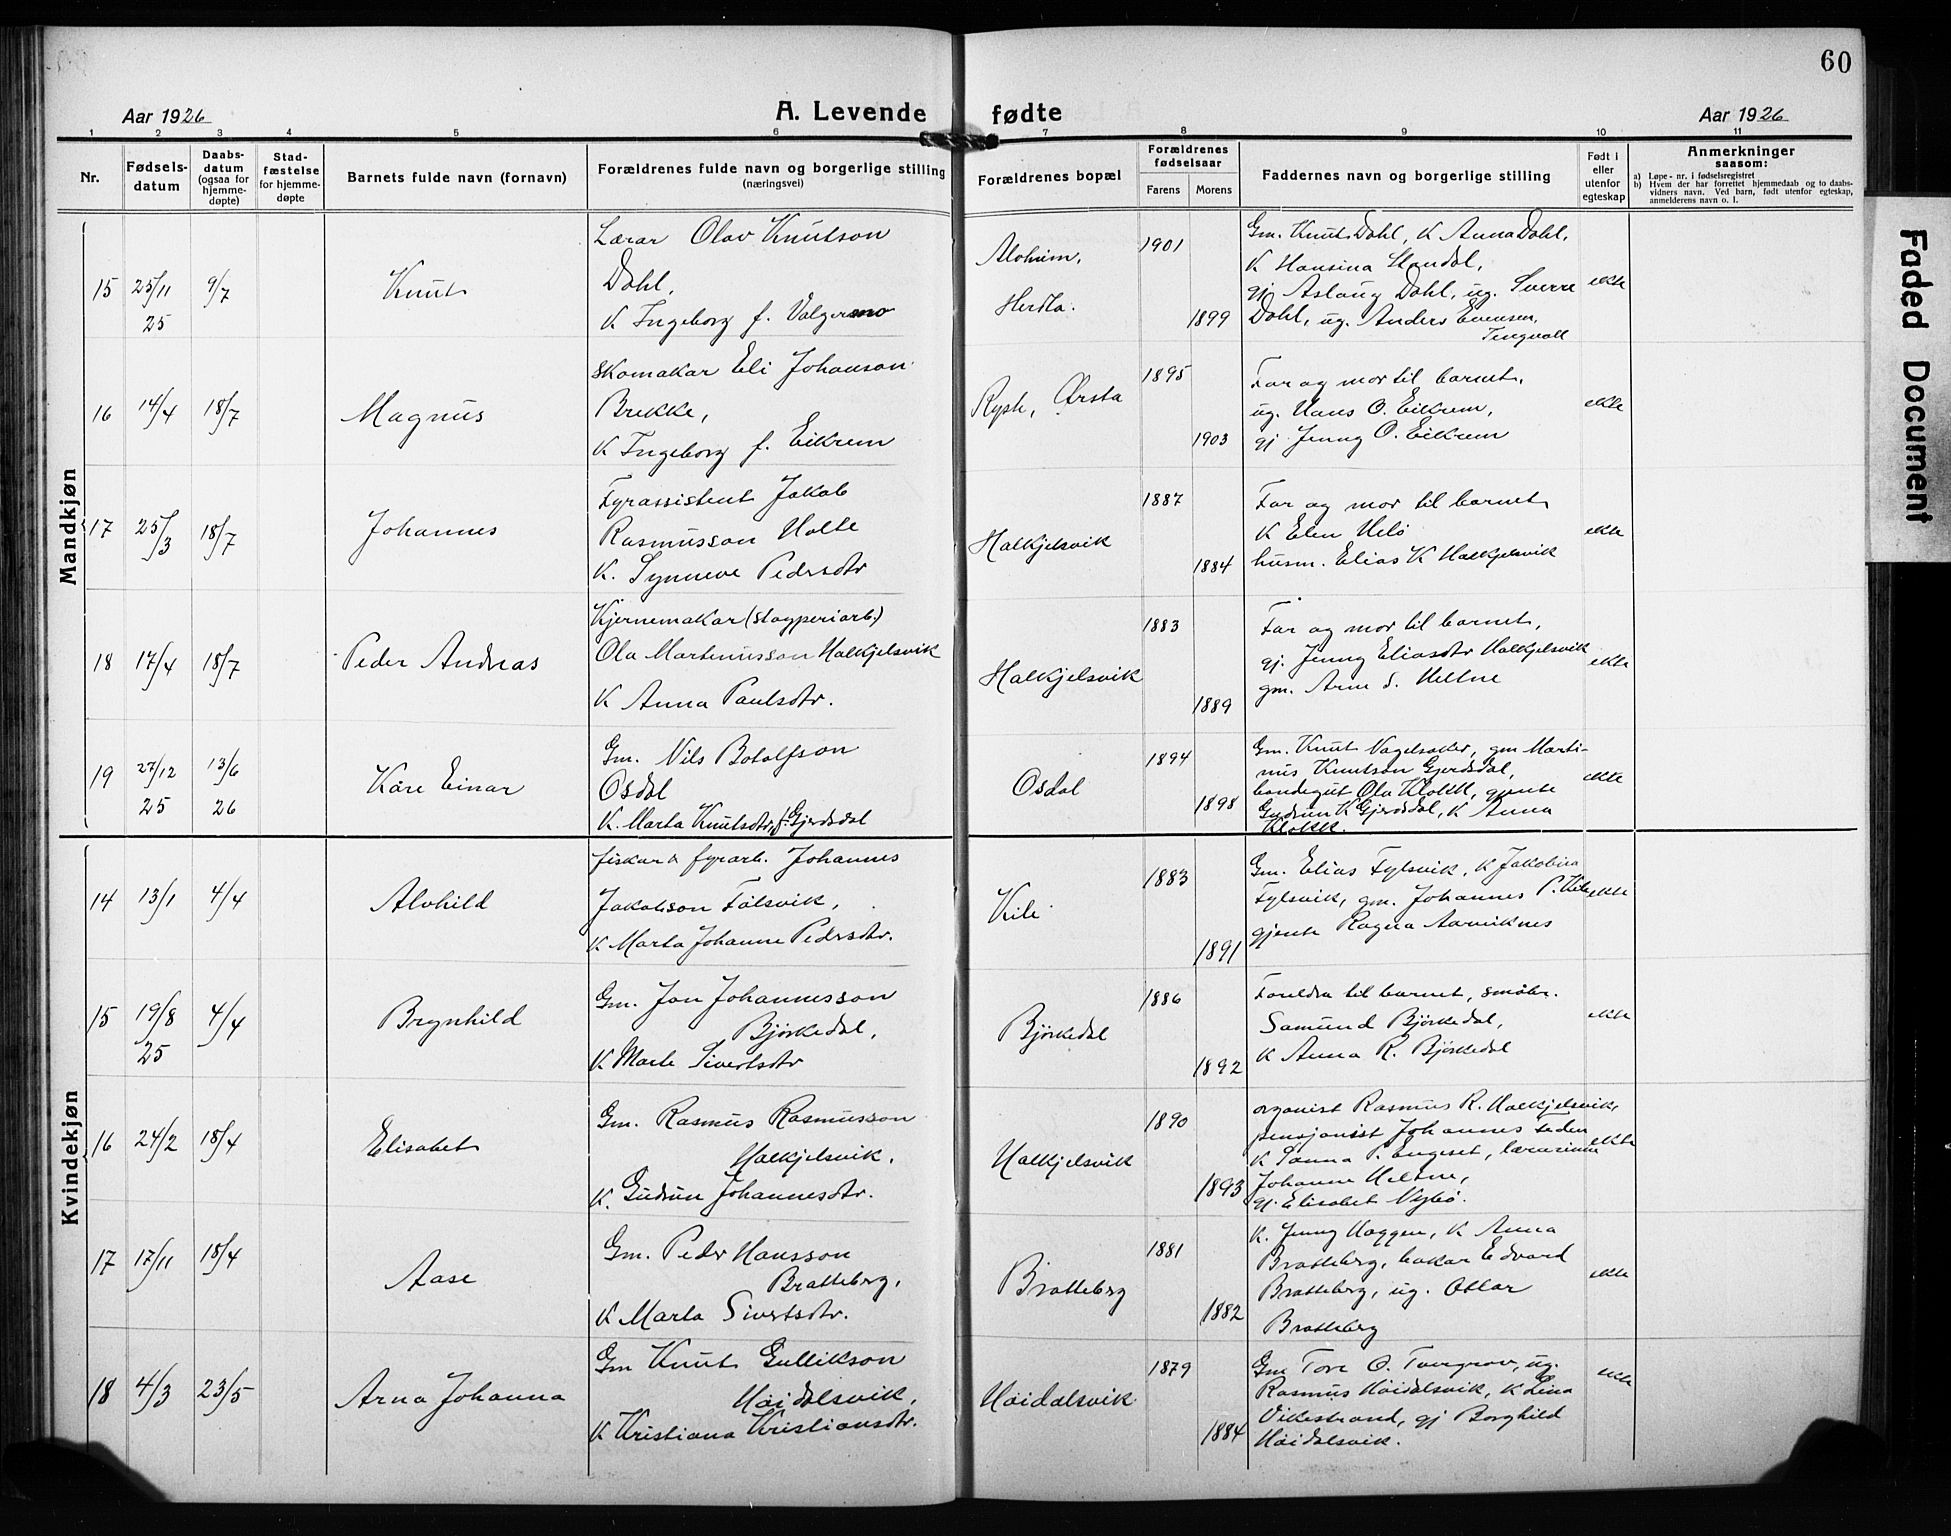 60
Aar 1926
A. Levende fødte
Aar 1926
1 2 3 4 5 6 7 8 9 10 11
Nr.
Fødsels-
datum
Daabs-
datum
(ogsaa for
hjemme-
døpte)
Stad-
fæstelse
for hjemme-
døpte
Barnets fulde navn (fornavn)
Forældrenes fulde navn og borgerlige stilling
(næringsvei)
Forældrenes bopæl
Forældrenes
fødselsaar
Farens
Morens
Faddernes navn og borgerlige stilling
Født i
eller
utenfor
egteskap
Anmerkninger
saasom:
a) Løpe - nr. i fødselsregistret
b) Hvem der har forrettet hjemmedaab og to daabs-
vidners navn. Ved barn, født utenfor egteskap,
anmelderens navn o. l.
Faded Document
Mandkjøn
15
25/11
25
9/7
Knut
Lærar Olav Knutson
Dahl,
K Ingeborg f. Valgermo
Herdla.
1901
1899
Gm. Knut Dahl, K Anna Dahl,
K Hansina Standal,
gj Aslaug Dahl, ug. Sverre
Dahl, ug. Anders Evensen,
Tingvoll
ekte
16
14/4
18/7
Magnus
Skomakar Eli Johanson
Brekke,
K Ingeborg f. Eikrem
Rysh, Ørsta
1895
1903
Far og mor til barnet,
ug. Hans O. Eikrem,
gj Jenny O. Eikrem
ekte
17
25/3
18/7
Johannes
Fyrassistent Jakob
Rasmusson Holte
K. Synneve Pedersdtr
Halkjelsvik
1887
1884
Far og mor til barnet
K Elen Helö
husm. Elias K Halkjelsvik
ekte
18
17/4
18/7
Peder Andreas
Kjernemakar (støyperiarb.)
Ola Martinusson Halkjelsvik
K Anna Paulsdtr.
Halkjelsvik
1883
1889
Far og mor til barnet,
gj. Jenny Eliasdtr Halkjelsvik
gm. Arne S. Heltne
ekte
19
27/12
25
13/6
26
Kåre Einar
Gm. Nils Botolfson
Osdal
K. Marta Knutsdtr, f. Gjerdsdal
Osdal
1894
1898
Gm. Knut Vagelsaker, gm Marti-
nus Knutson Gjerdsdal,
bondegut Ola Klokk, gjente
Gudrun K Gjerdsdal, K Anna
Klokk.
ekte
Kvindekjøn
14
13/1
4/4
Alvhild
fiskar & fyrarb. Johannes
Jakobson Fölsvik,
K Marta Johanne Pedersdtr.
Kile
1883
1891
Gm. Elias Fylsvik, K Jakobina
Fylsvik, gm. Johannes P. Kile
gjente Ragna Aarviknes
ekte
15
19/8
25
4/4
Brynhild
Gm. Jon Johannesson
Björkedal,
K Marte Sivertsdtr
Björkedal
1886
1892
Foreldra til barnet, småbr.
Samund Björkedal,
K Anna R. Björkedal
ekte
16
24/2
18/4
Elisabet
Gm. Rasmus Rasmusson
Halkjelsvik.
K. Gudrun Johannesdtr.
Halkjelsvik
1890
1893
organist Rasmus R. Halkjelsvik,
pensjonist Johannes
K Sanna P. Engeset, lærerinne
Johanne Heltne,
gj. Elisabet Nybö.
ekte
17
17/11
18/4
Aase
Gm. Peder Hansson
Bratteberg,
K Marta Sivertsdtr.
Bratteberg
1881
1882
K. Jenny Haggen, K Anna
Bratteberg, bakar Edvard
Bratteberg, ug. Ottar
Bratteberg
ekte
18
4/3
23/5
Arna Johanna
Gm Knut Gullikson
Höidalsvik,
K Kristiana Kristiansdtr.
Höidalsvik
1879
1884
Gm Tore O. Tuegrov, ug.
Rasmus Höidalsvik, K Lina
Vikestrand, gj Borghild
Höidalsvik.
ekte